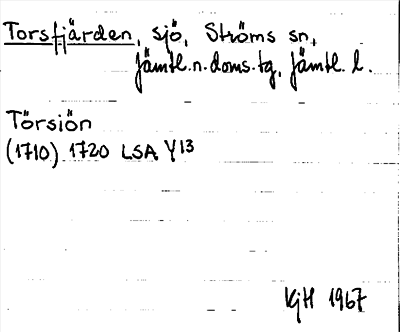 Torsfjärden, sjö, Ströms sn,
Jämtl. n. doms. tg, Jämtl. l.
Törsiön
(1710) 1720 LSA Y13
KjH 1967